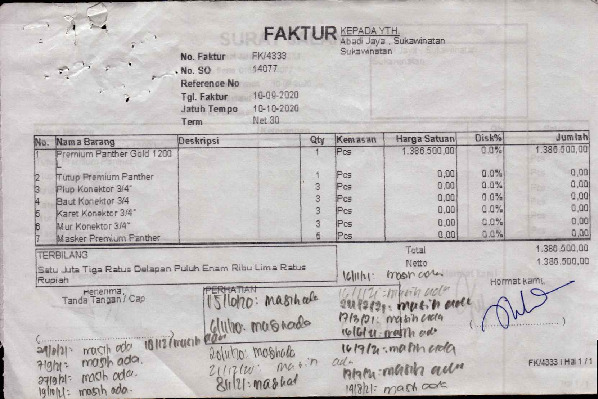 FAKTUR
KEPADA YTH.
Abadi Jaya , Sukawinatan
Sukawinatan
No. Faktur FK/4333
No. SO 14077
Reference No
Tgl. Faktur 10-09-2020
Jatuh Tempo 10-10-2020
Term Net 30
No. Nama Barang Deskripsi Qty Kemasan Harga Satuan Disk% Jumlah
1 Premium Panther Gold 1200 L 1 Pcs 1.386.500,00 0.0% 1.386.500,00
2 Tutup Premium Panther 1 Pcs 0,00 0.0% 0,00
3 Plup Konektor 3/4" 3 Pcs 0,00 0.0% 0,00
4 Baut Konektor 3/4 3 Pcs 0,00 0.0% 0,00
5 Karet Konektor 3/4" 3 Pcs 0,00 0.0% 0,00
6 Mur Konektor 3/4" 3 Pcs 0,00 0.0% 0,00
7 Masker Premium Panther 6 Pcs 0,00 0.0% 0,00
Total 1.386.500,00
Netto 1.386.500,00
TERBILANG
Satu Juta Tiga Ratus Delapan Puluh Enam Ribu Lima Ratus
Rupiah
Penerima,
Tanda Tangan / Cap
PERHATIAN
Hormat kami,
16/11/21: masih ada
15/10/20: masih ada
masih ada
masih ada
17/3/21: masih ada
masih ada
16/6/21: masih ada
masih ada
masih ada
16/7/21: masih ada
7/9/21: masih ada.
masih ada
27/9/21: masih ada.
masih ada
19/10/21: masih ada.
19/8/21: masih ada
FK/4333 | Hal 1 / 1